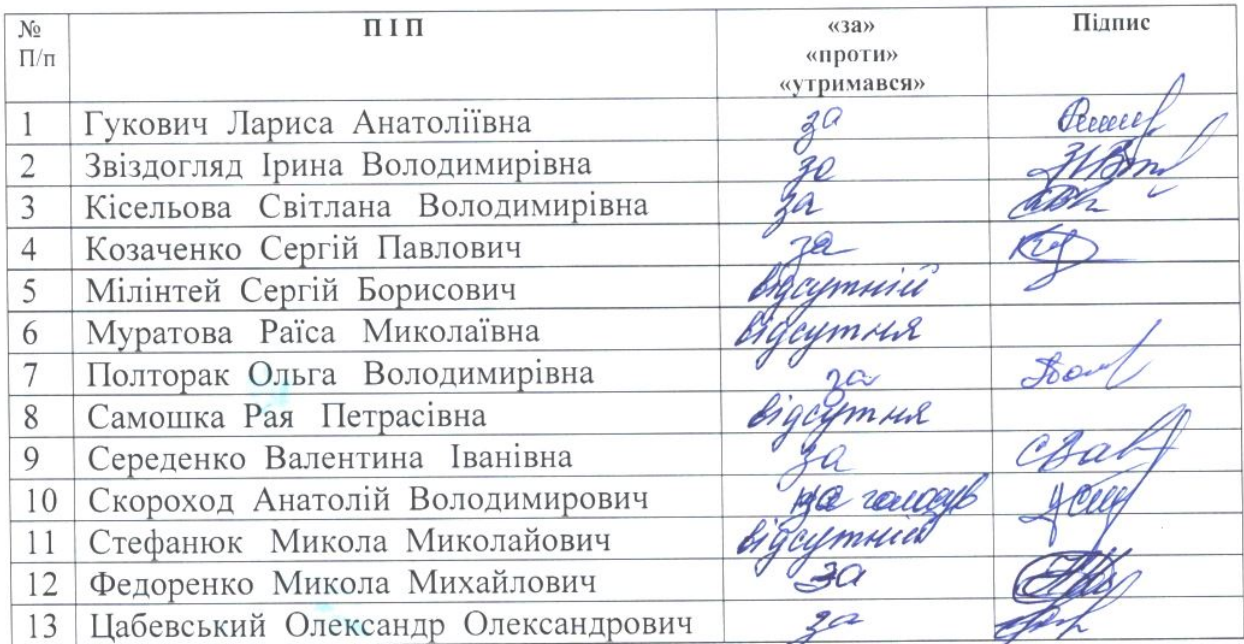 № П І П «за» Підпис
П/п «проти»
«утримався»
1 Гукович Лариса Анатоліївна за
2 Звіздогляд Ірина Володимирівна за
3 Кісельова Світлана Володимирівна за
4 Козаченко Сергій Павлович за
5 Мілінтей Сергій Борисович відсутній
6 Муратова Раїса Миколаївна відсутня
7 Полторак Ольга Володимирівна за
8 Самошка Рая Петрасівна відсутня
9 Середенко Валентина Іванівна за
10 Скороход Анатолій Володимирович
11 Стефанюк Микола Миколайович відсутній
12 Федоренко Микола Михайлович за
13 Цабевський Олександр Олександрович за